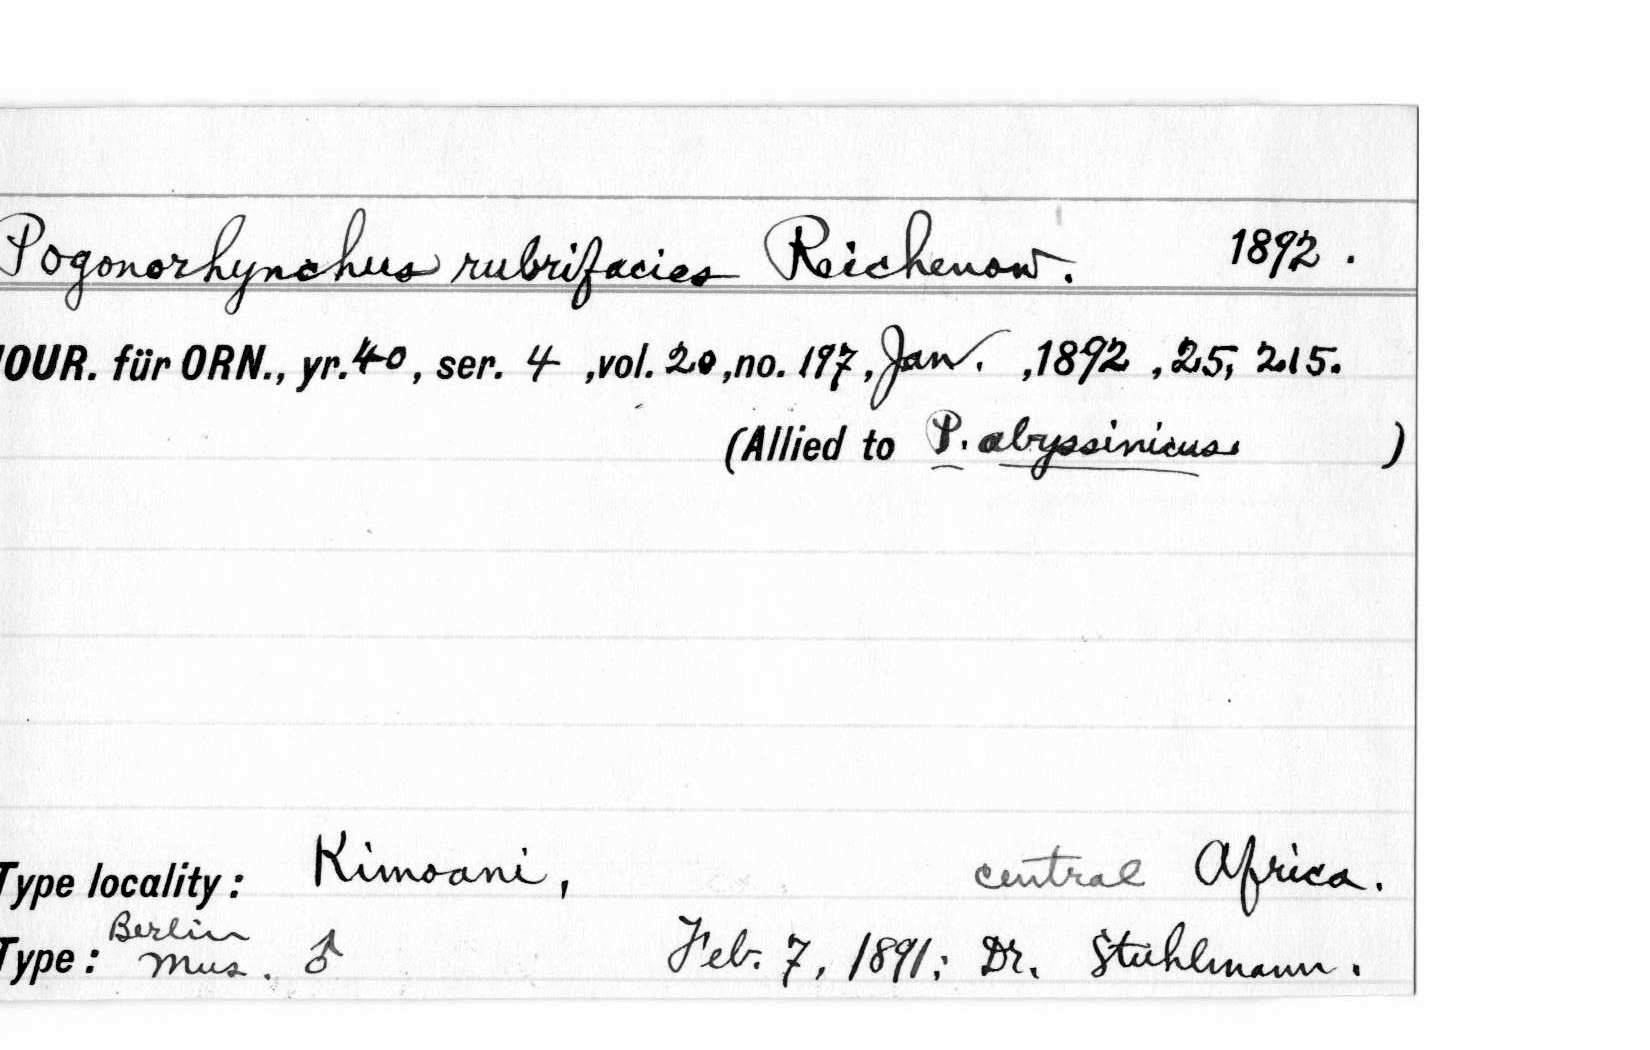 Pogonorhynchus rubrifacies Reichenow. 1892.
JOUR. für ORN., yr. 40, ser. 4, vol. 20, no. 197, Jan. , 1892, 25, 215.
(Allied to P. abyssinicus )
Type locality: Kimoani, central Africa.
Type: Berlin Mus. ♂ Feb. 7, 1891; Dr. Stuhlmann.